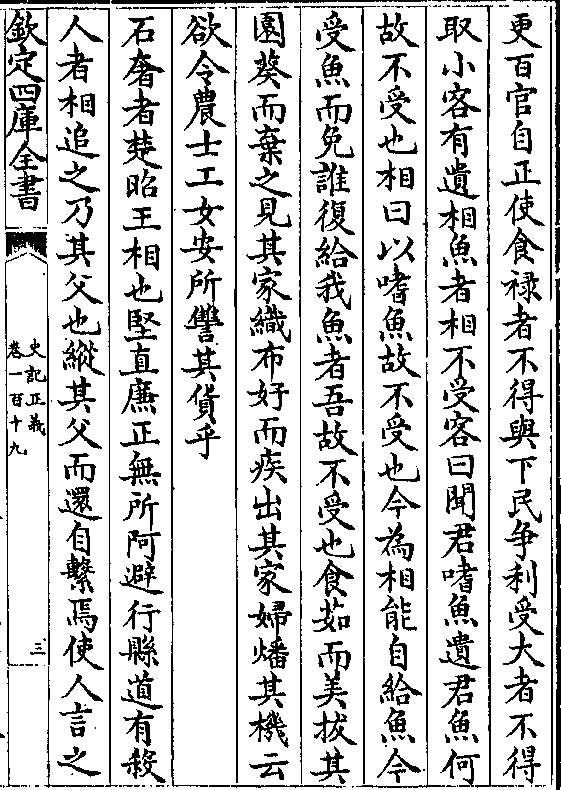 更百官自正使食禄者不得與下民争利受大者不得
取小客有遺相魚者相不受客曰聞君嗜魚遺君魚何
故不受也相曰以嗜魚故不受也今為相能自給魚今
受魚而免誰復給我魚者吾故不受也食茹而美拔其
園葵而棄之見其家織布好而疾出其家婦燔其機云
欲令農士工女安所讐其貨乎
石奢者楚昭王相也堅直廉正無所阿避行縣道有殺
人者相追之乃其父也縱其父而還自繫焉使人言之
欽定四庫全書
史記正義
卷一百十九
三